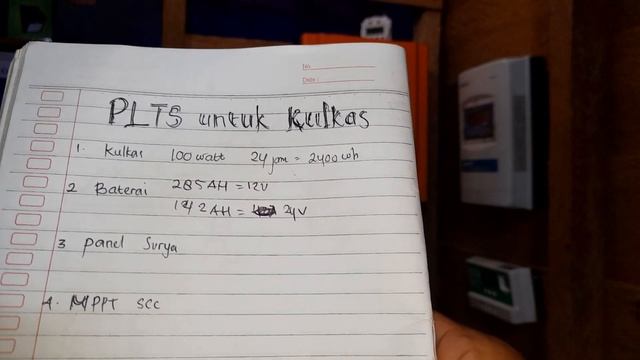 No.
Date:
PLTS untuk Kulkas
1. Kulkas 100 watt 24 jam = 2400 wh
2 Baterai 285 AH = 12V
142 AH = 24V
3 panel Surya
4. MPPT SCC